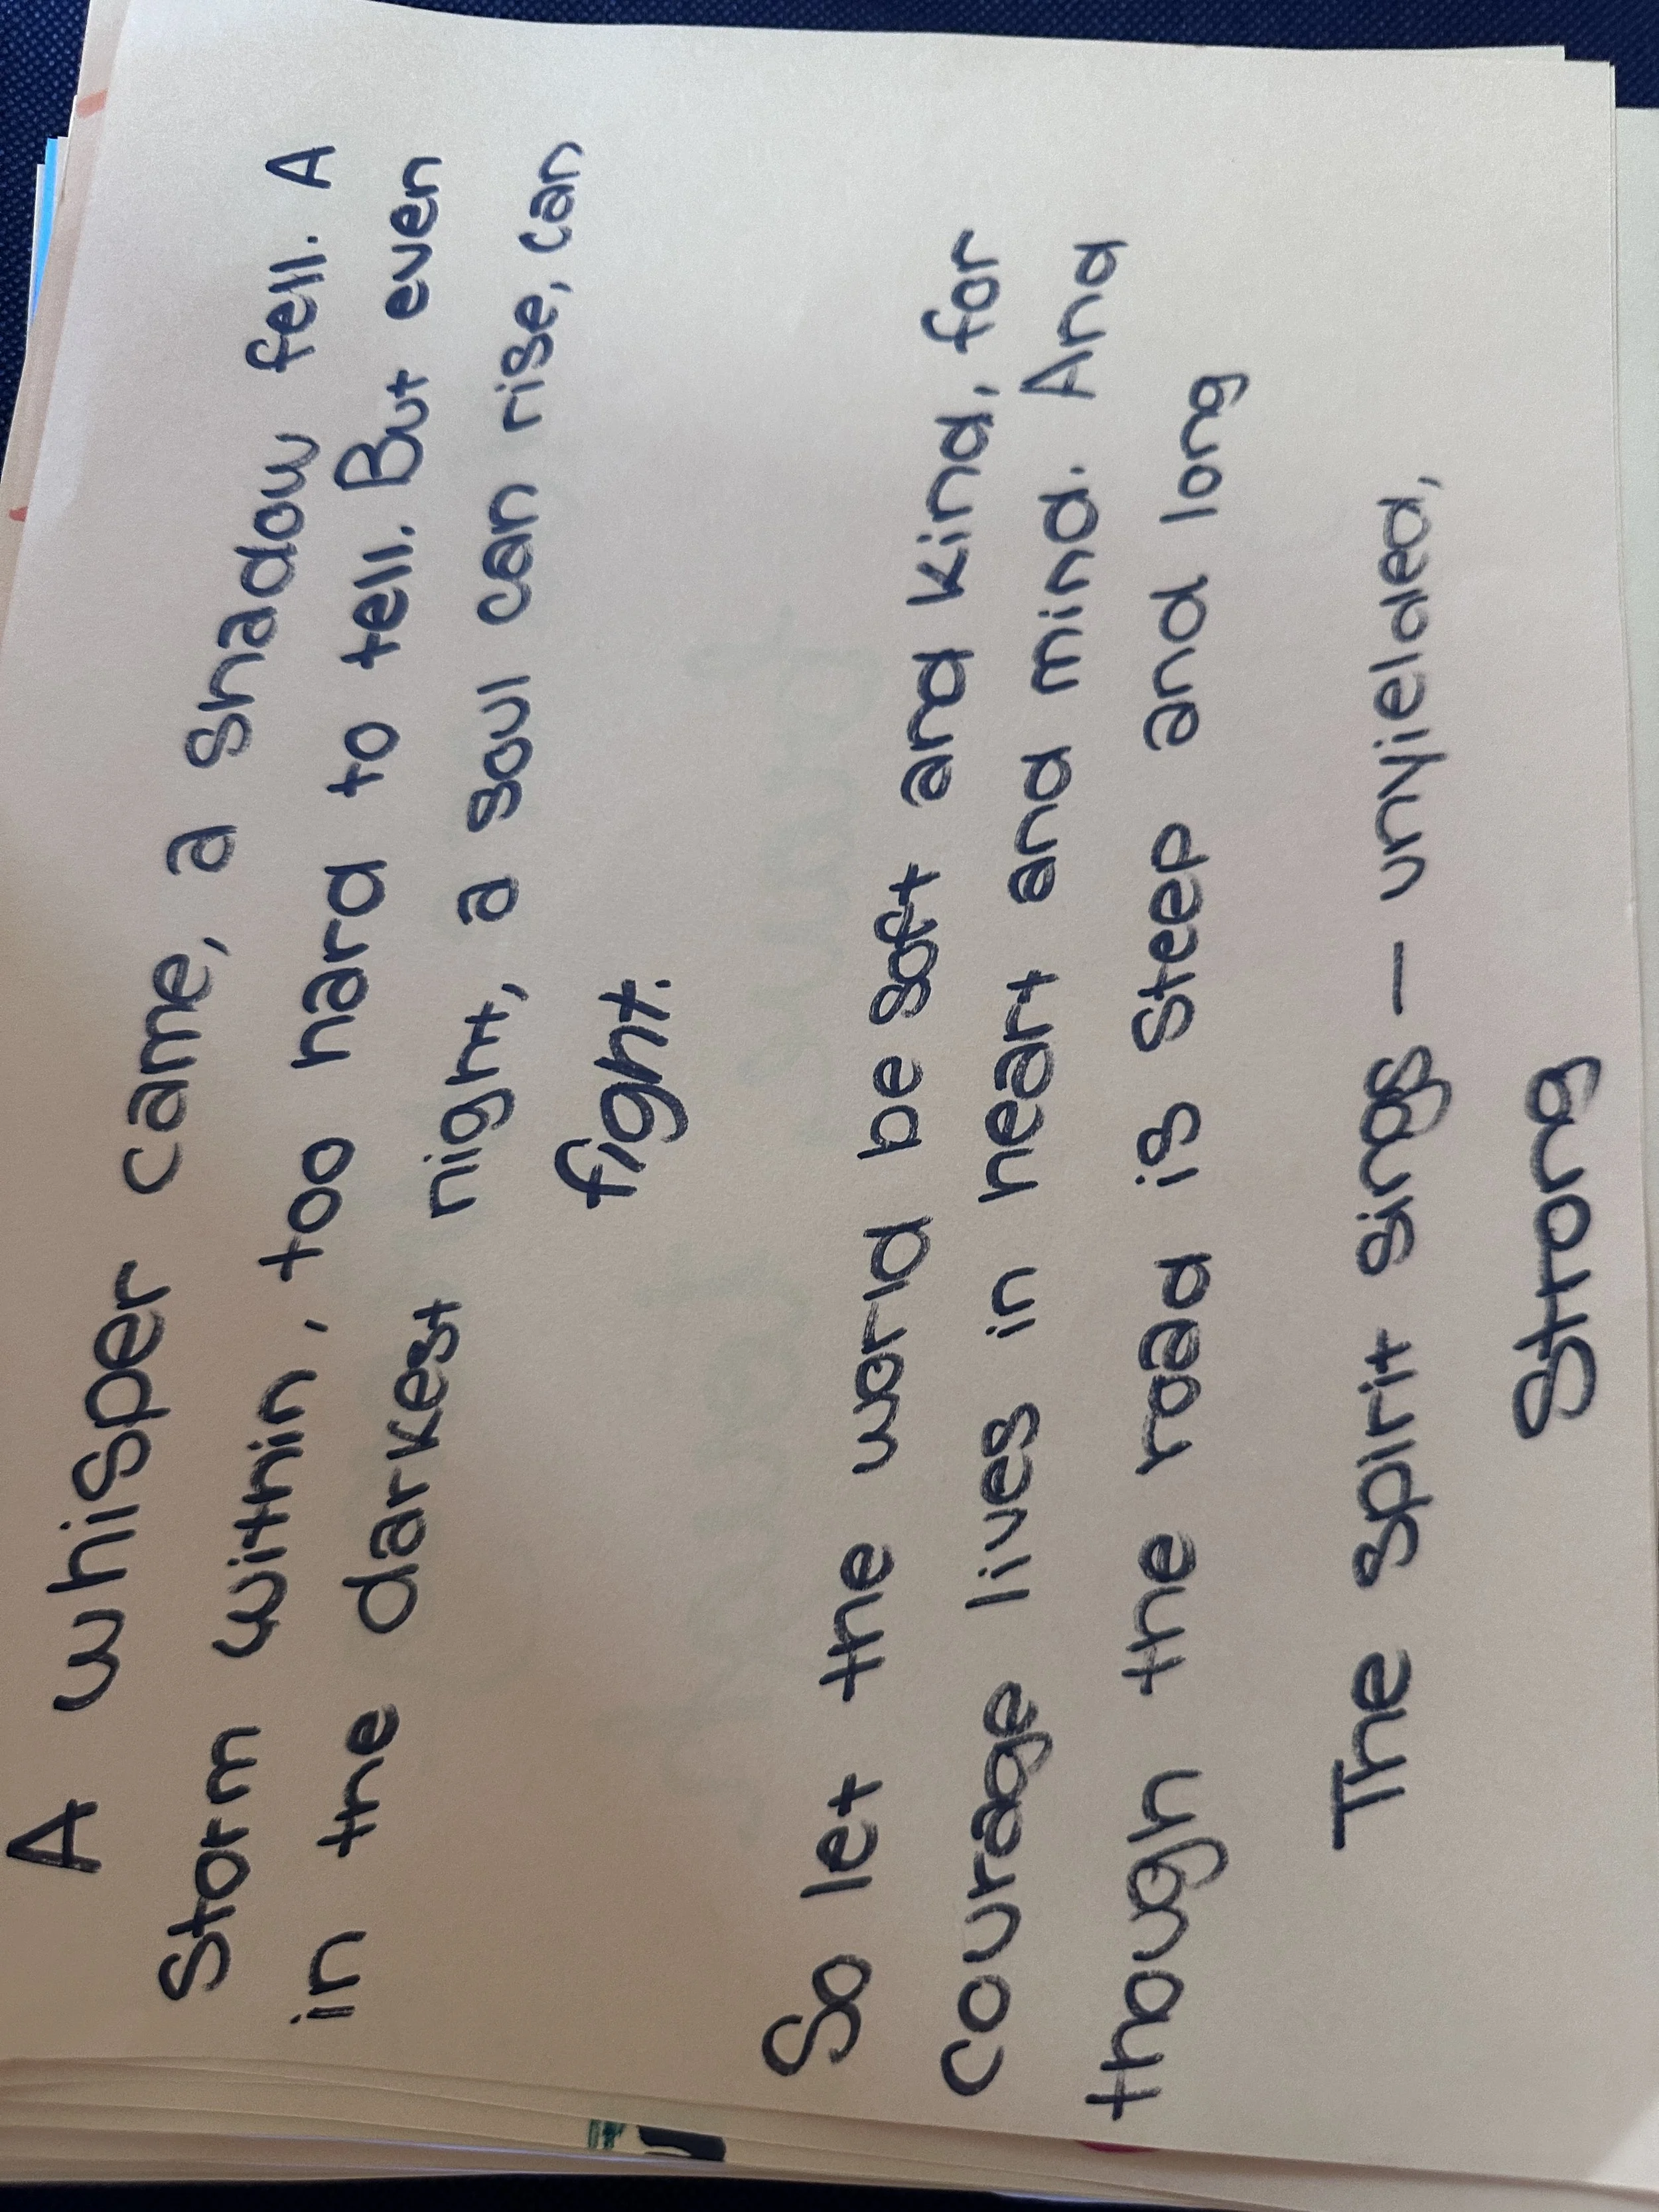 A whisper came, a shadow fell. A
Storm within, too hard to tell. But even
in the darkest night, a soul can rise, can
fight.
So let the world be soft and kind, for
Courage lives in heart and mind. And
though the road is Steep and long
The spirit sings — unyielded,
Strong